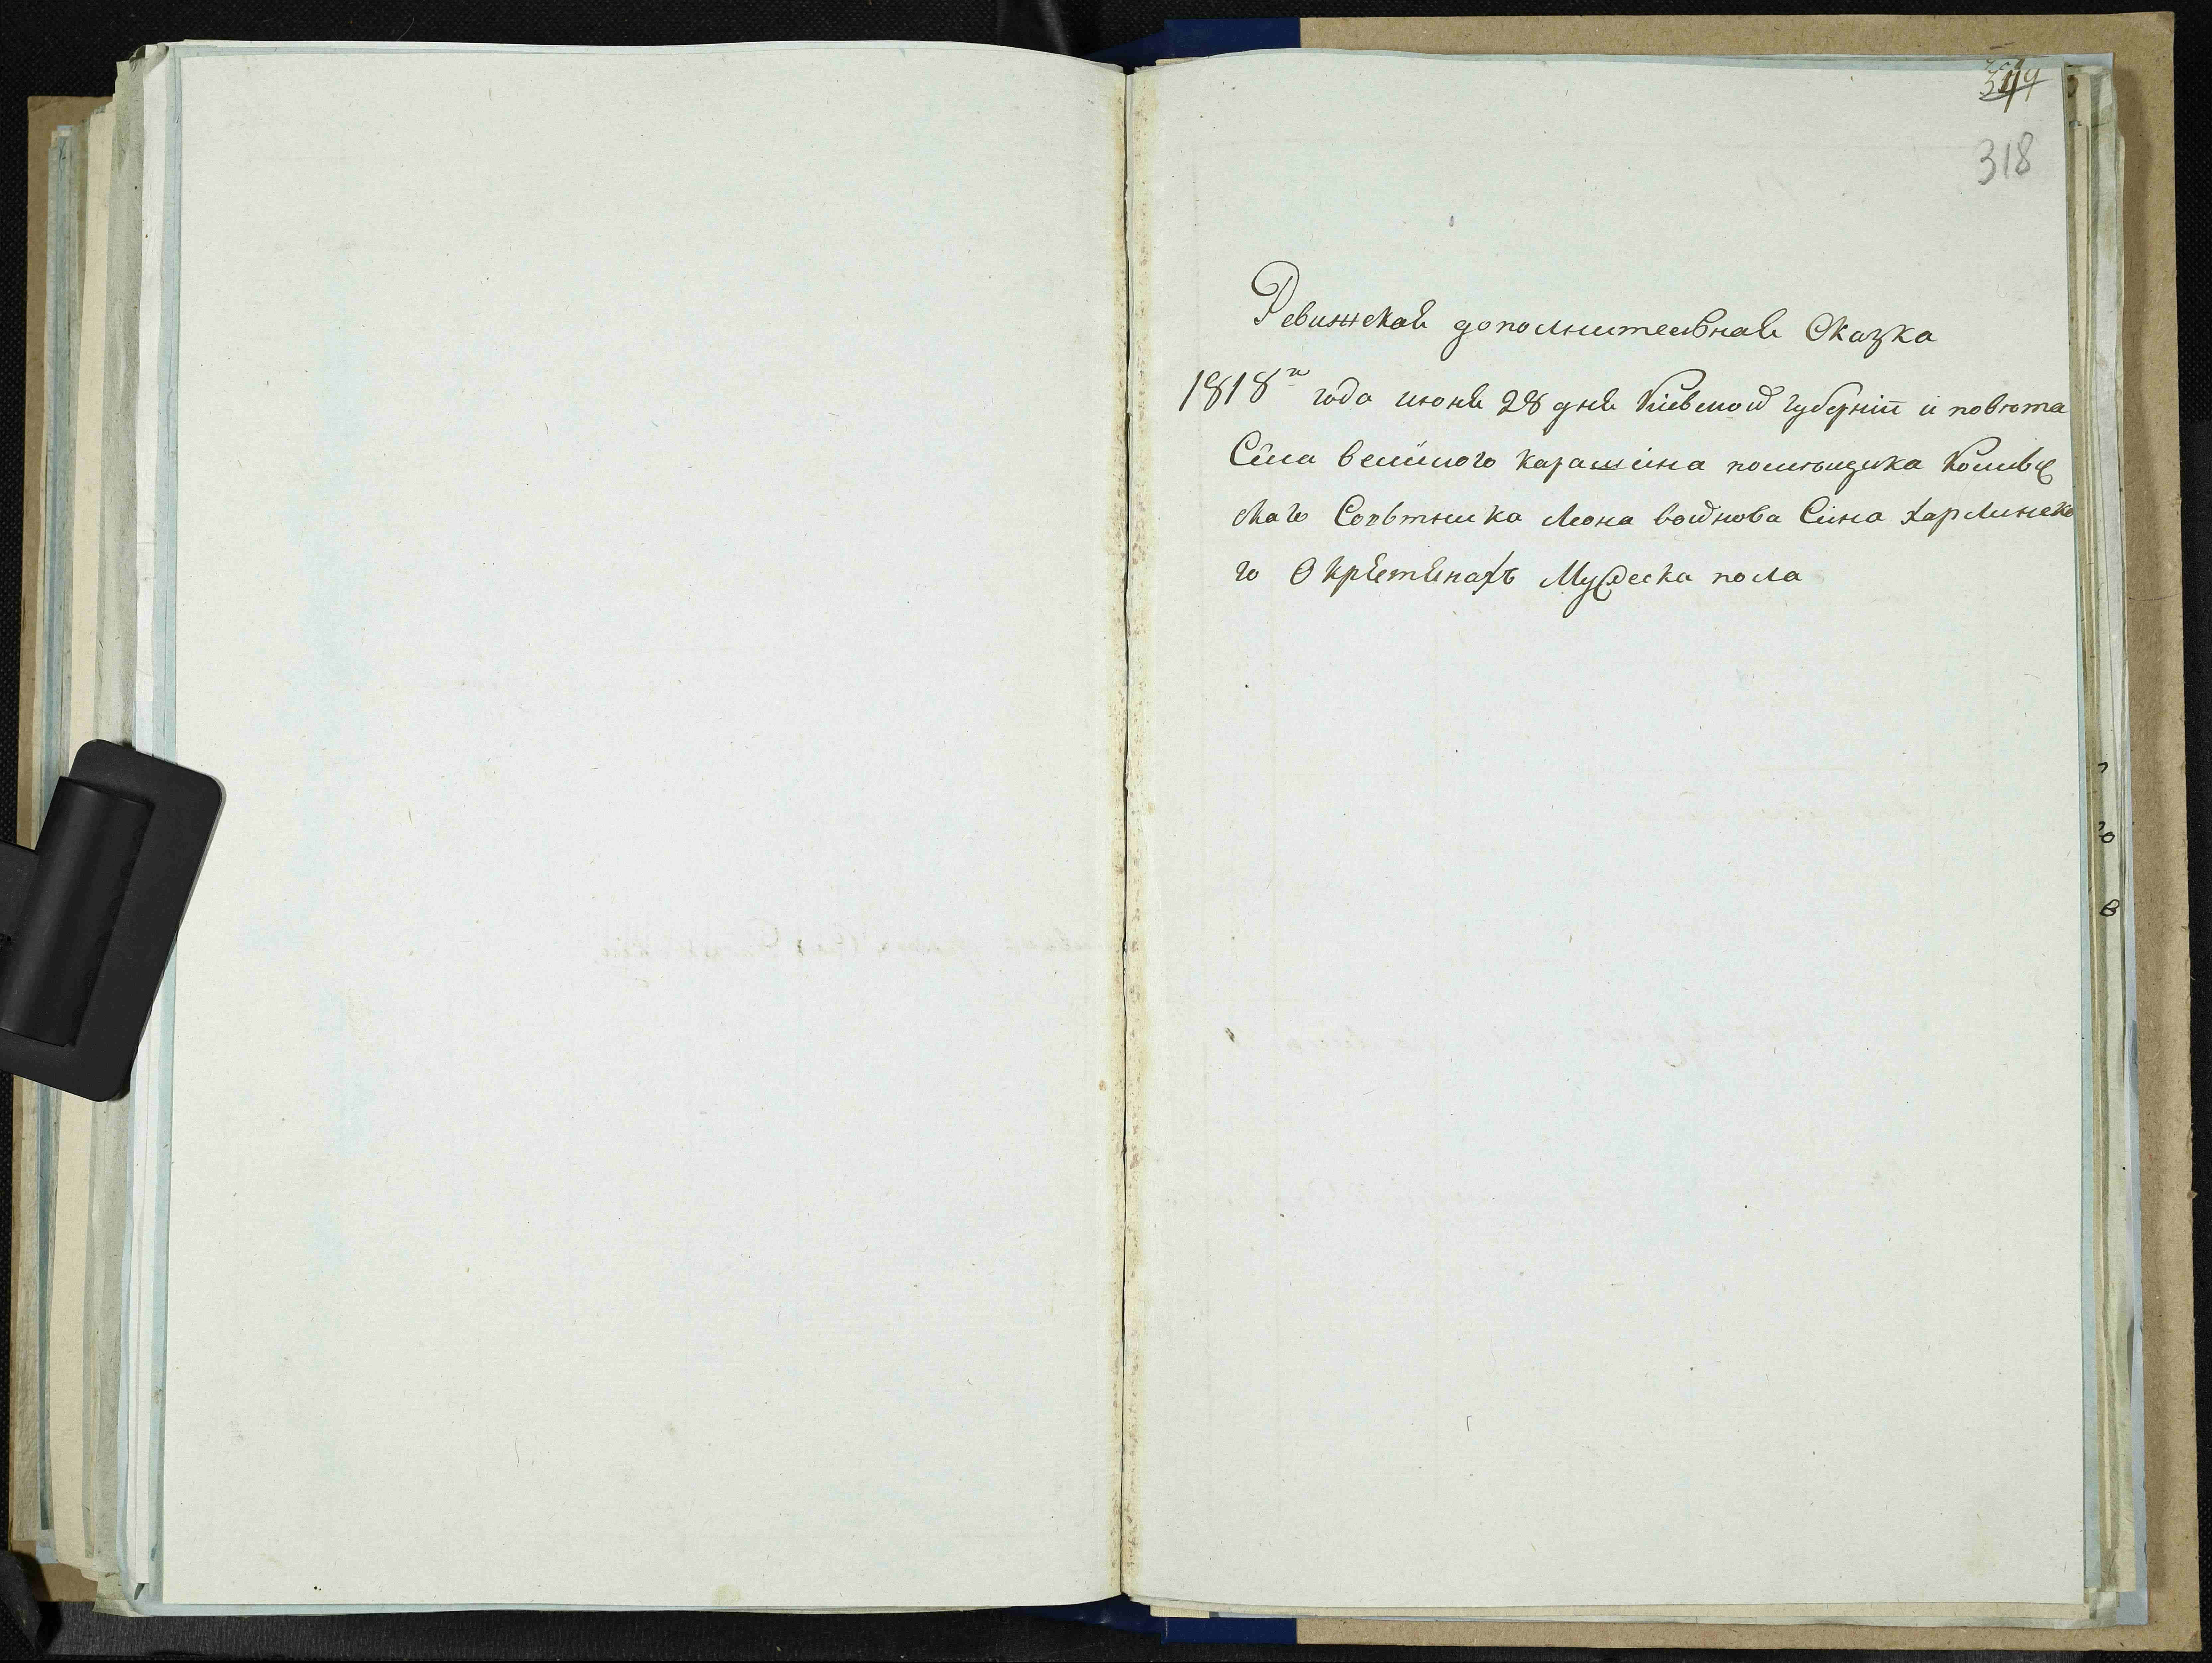 318
Ревижская дополнителвная Сказка
1818го года июня 28 дня Киевской губернїи и повѣта
Села великого карашина помѣщика Колижс
скаго Совѣтника Леона войнова Сина Харлинско
го О крѣстянахъ Мужеска пола